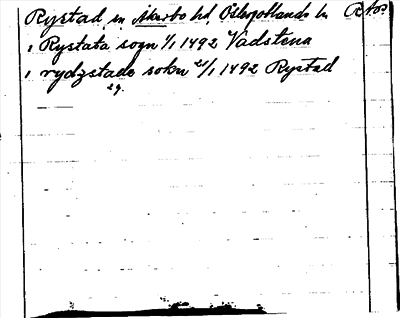 Rystad sn Åkerbo hd Östergötlands ln
i Rystata sogn 4/1 1492 Vadstena
i rydzstade sokn 21/1 1492 Rystad
29.